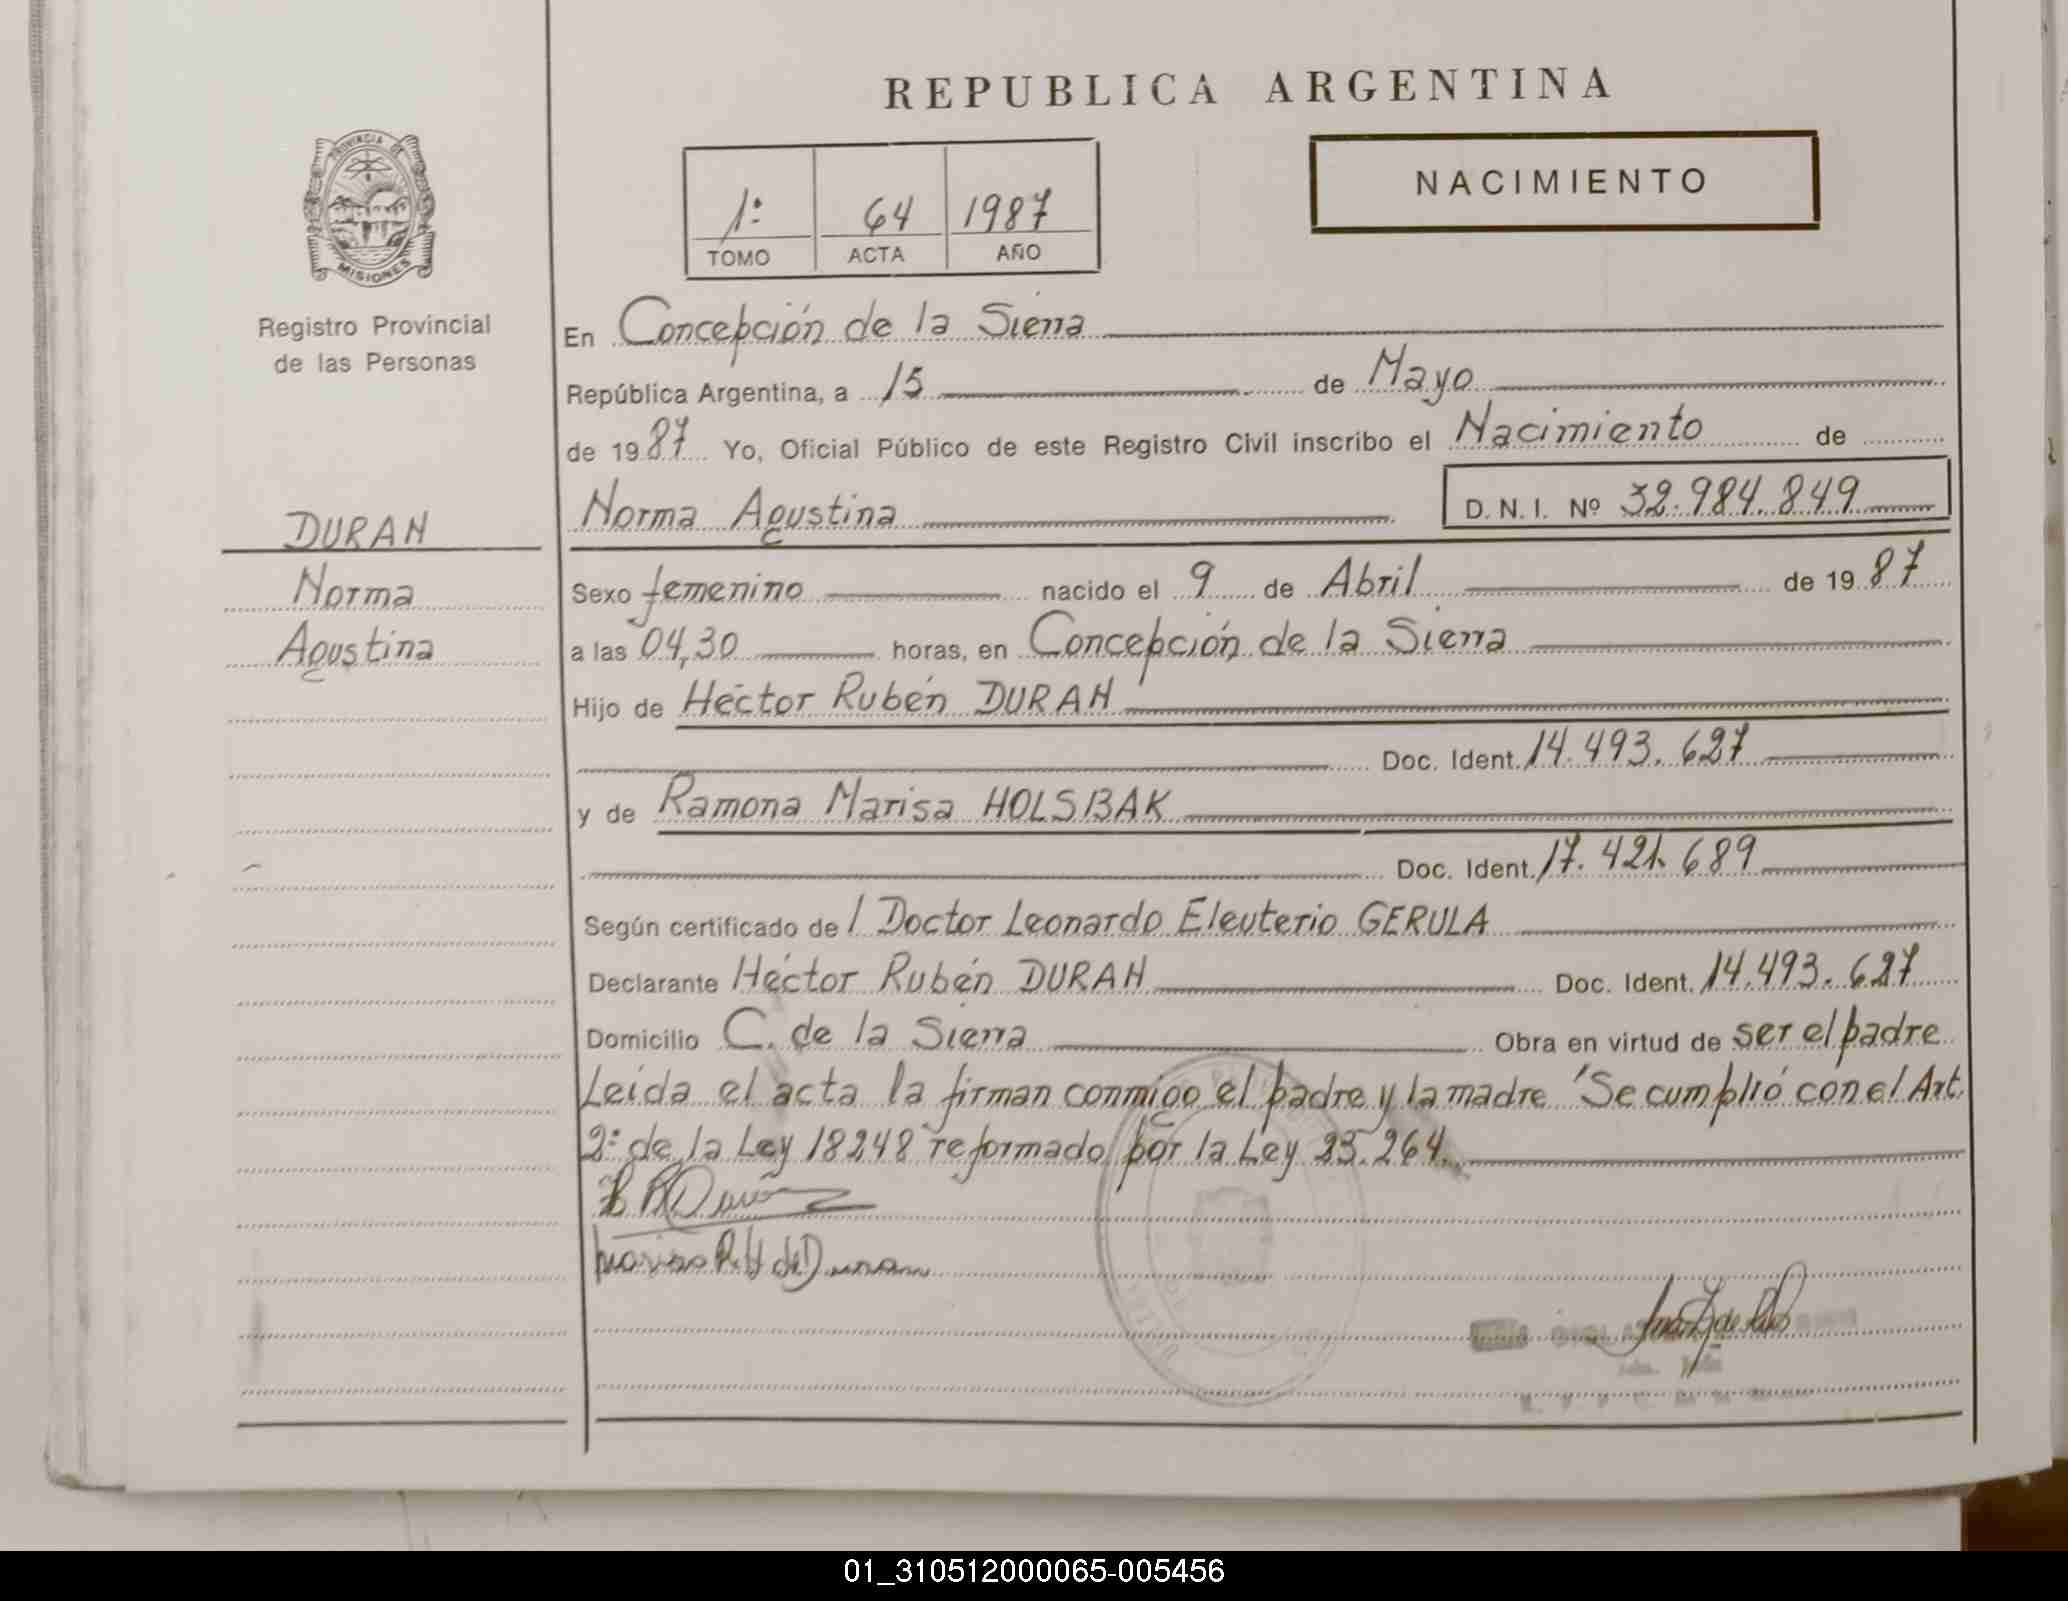 REPUBLICA ARGENTINA
PROVINCIA DE
MISIONES
Registro Provincial
de las Personas
1º 64 1987
TOMO ACTA AÑO
NACIMIENTO
En Concepción de la Sierra
República Argentina, a 15 de Mayo
de 1987 Yo, Oficial Público de este Registro Civil inscribo el Nacimiento de
Norma Agustina D. N. I. Nº 32.984.849
DURAN
Norma
Agustina
Sexo femenino nacido el 9 de Abril de 1987
a las 04,30 horas, en Concepción de la Sierra
Hijo de Héctor Rubén DURAN
Doc. Ident. 14.493.627
y de Ramona Marisa HOLSBAK
Doc. Ident. 17.421.689
Según certificado de l Doctor Leonardo Eleuterio GERULA
Declarante Héctor Rubén DURAN Doc. Ident. 14.493.627
Domicilio C. de la Sierra Obra en virtud de ser el padre
Leída el acta la firman conmigo el padre y la madre "Se cumplió con el Art.
2º de la Ley 18248 reformado por la Ley 23.264.
01_310512000065-005456